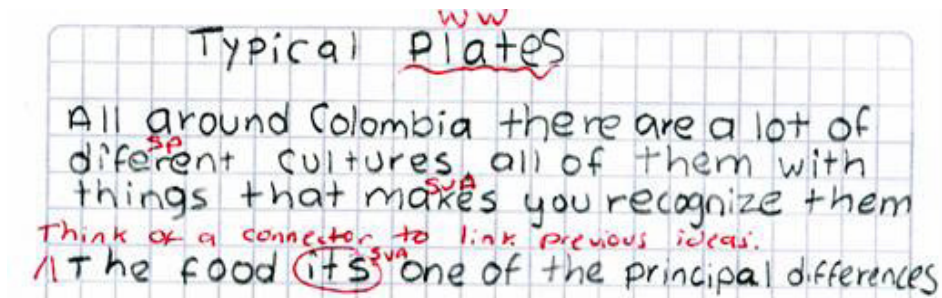 WW
Typical Plates
All around Colombia there are a lot of
SP
diferent cultures all of them with
SVA
things that makes you recognize them
Think of a connector to link previous ideas.
/\ The food its SVA one of the principal differences